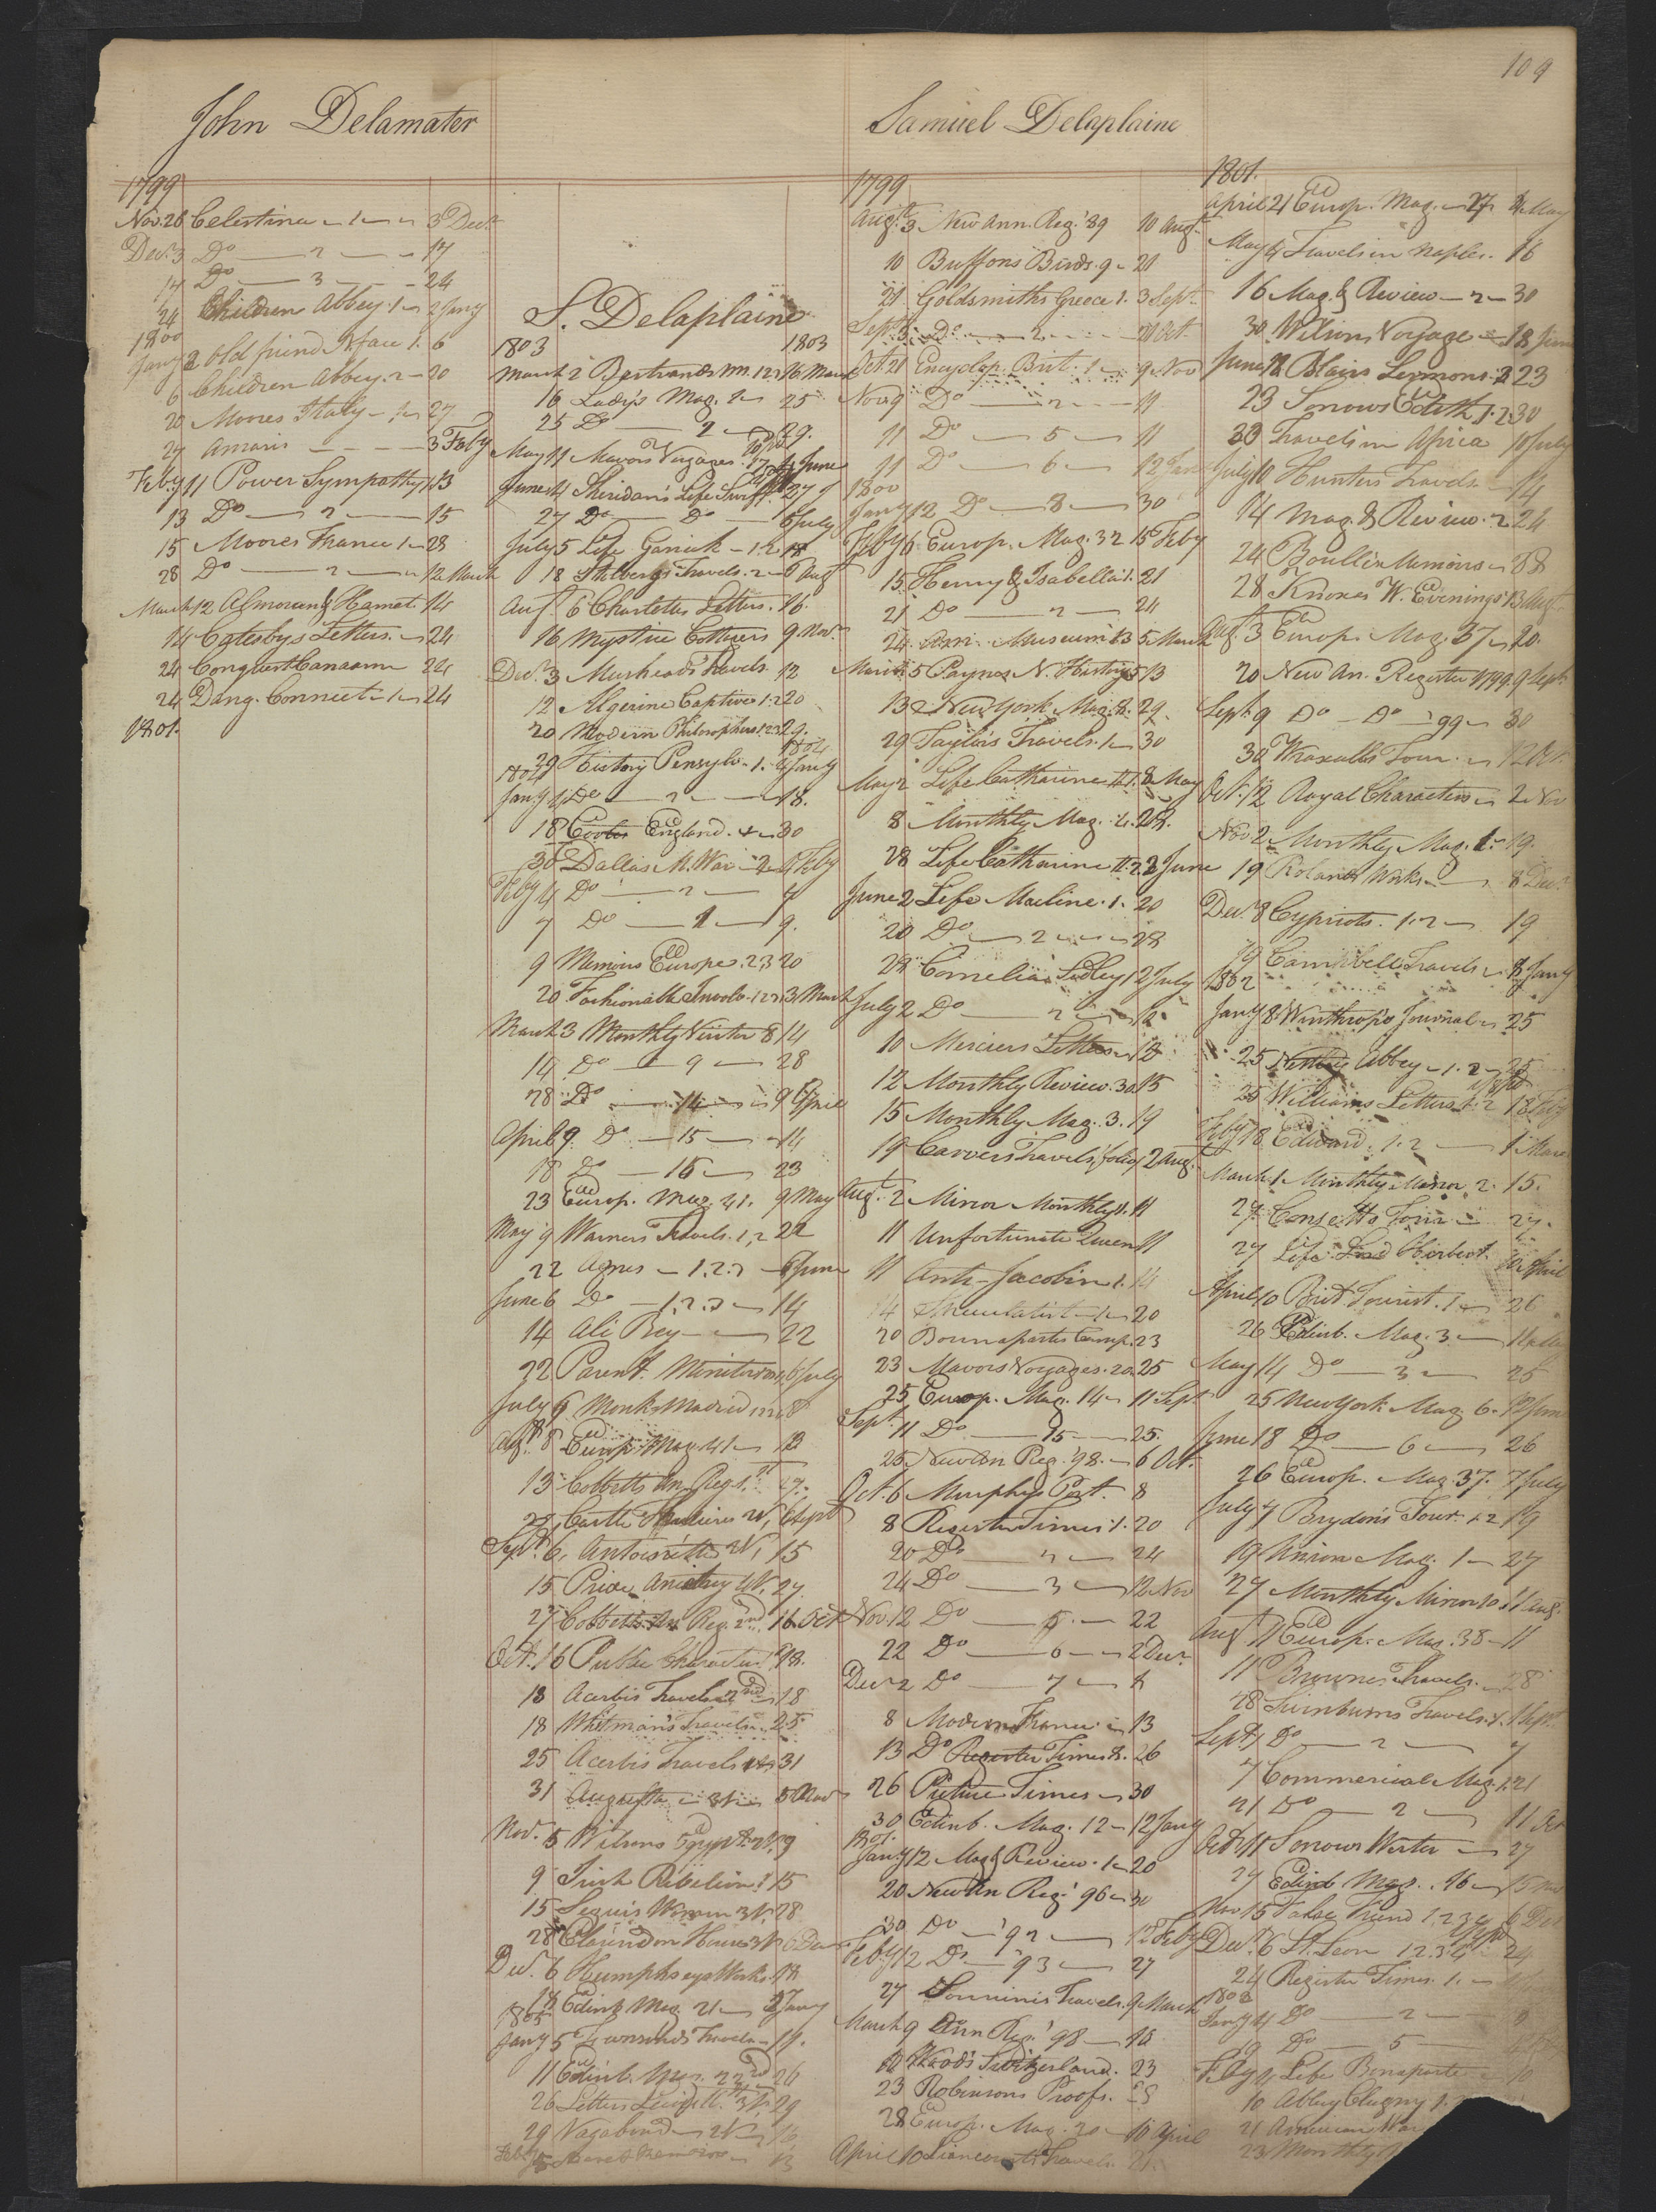 109
John Delamater
1799
Nov. 26 Celestina 1 3 Decr
Decr 3 Do 2 17
17 Do 3 24
24 Children Abbey 1 2 Jany
1800
Jany 2 Old friend N. face 1. 6
6 Children Abbey. 2 20
20 Moores Italy 1 27
27 Amaris 3 Feby
Feby 11 Power Sympathy 1 13
13 Do 2 15
15 Moores France 1 28
28 Do 2 12 March
March 12 Almoran & Hamet. 14
14 Catesbys Letters. 24
24 Conquest Canaan 24
24 Dang. Connect. 1 24
1801.
S. Delaplaine
1803 1803
March 2 Bertrands 1.2.3 16 March
16 Ladys Mag. 1 25
25 Do 2 29.
May 11 Mavors Voyages. 17 4 June
June 4 Sheridan's Life Swift 27
27 Do Do 5 July
July 5 Life Garrick 1.2 18
18 Stolbergs Travels. 2 6 Aug
Aug 6 Charlottes Letters. 16.
16 Mystic Cottagers 9 Nov.
Dec. 3 Muirheads Travels. 12
12 Algerine Captive 1.2 20
20 Modern Philosophers 1.2.3 29.
29 History Pensylv. 1. 4 Jany
1804
Jany 4 Do 2 18.
18 Cootes England. 4 30
30 Dallas M. War 2 4 Feby
Feby 4 Do 2 7
7 Do 1 9.
9 Memoirs Europe. 2.3 20
20 Fashionable Involv. 1.2.3 3 March
March 3 Monthly Visitor 8 14
14 Do 9 28
28 Do 14 9 April
April 9. Do 15 14
18 Do 16 23
23 Europ. Mag. 41. 9 May
May 9 Warners Travels. 1,2 22
22 Agnes 1.2.3 6 June
June 6 Do 1.2.3 14
14 Ali Bey 22
22 Parent. Monitor 6 July
July 6 Monk Madrid 8
Augt 8 Europ. Mag. 41 13
13 Cobbetts An. Reg. 1st 27.
27 Castle 2V, 6 Sept
Sept. 6, Antoinette 2V, 15
15 Pride Ancestry 4V. 27
27 Cobbetts An Reg. 2nd. 16 Oct
Oct. 16 Public Character 18.
18 Acerbis Travels 2nd 18
18 Whitman's Travels. 25
25 Acerbis Travels 31
31 Augusta 3V 5 Nov
Nov. 5 Wilsons Egypt 2V. 9
9 Irish Rebelion 15
15 Sequis 3V. 28
28 Clarendon House 3V. 6 Dec
Decr. 6 Humphreys Works. 18
18 Edinb Mag. 21 5 Jany
1805
Jany 5 Townsends Travels 11.
11 Edinb. Mag. 22nd 26
26 Letters 3V. 29
29 Vagabond 2V 13
Samuel Delaplaine
1799
Augt. 3 New Ann. Reg. '89 10 Augt
10 Buffons Birds. 9 21
21 Goldsmiths Greece 1. 3 Sept.
Sept. 3 Do 2 21 Oct.
Oct. 21 Encyclop. Brit. 1 9 Nov
Nov. 9 Do 2 11
11 Do 5 11
11 Do 6 12 Jany
1800
Jany 12 Do 8 30
Feby 6 Europ. Mag. 32 15 Feby
15 Henry & Isabella 1. 21
21 Do 2 24
24 Am. Museum 13 5 March
March 5 Paynes N. History 5 13
13 New York Mag. 2. 29.
29 Taylors Travels. 1 30
May 2 Life Catharine II. 1. 8 May
8 Monthly Mag. 4. 28.
28 Life Catharine II. 2 2 June
June 2 Life Macline. 1. 20
20 Do 2 28
28 Cornelia Sedley 1 2 July
July 2 Do 2 12
10 Merciers Letters 12
12 Monthly Review. 30 15
15 Monthly Mag. 3. 19
19 Carvers Travels, folio, 2 Aug.
Augt. 2 Mirror Monthly 1. 11
11 Unfortunate Queen 11
11 Anti-Jacobin 1. 14
14 Speculatist 1 20
20 Bounapartes Camp. 23
23 Mavors Voyages. 20 25
25 Europ. Mag. 14 11 Sept
Sept. 11 Do 15 25.
25 New An Reg. '98. 6 Oct.
Oct. 6 Murphys Port. 8
8 Register Times 1. 20
20 Do 2 24
24 Do 3 12 Nov
Nov. 12 Do 5 22
22 Do 6 2 Decr.
Decr 2 Do 7 8
8 Modern France 13
13 Do Register Times 8. 26
26 Picture Times 30
30 Edinb. Mag. 12 12 Jany
1801.
Jany 12 Mag & Review. 1 20
20 New An Reg. '96 30
30 Do '92 12 Feby
Feby 12 Do '93 27
27 Sonninis Travels. 9 March
March 9 Ann Reg. '98 18
18 Woods Switzerland. 23
23 Robinsons Proofs. 28
28 Europ. Mag. 20 10 April
April 10 Liancourts Travels. 21.
1801.
April 21 Europ. Mag. 27 4 May
May 4 Travels in Naples. 16
16 Mag. & Review 2 30
30 Wilsons Voyage 18 June
June 18 Blairs Sermons. 2 23
23 Sorrows Edith 1. 2 30
30 Travels in Africa 10 July
July 10 Hunters Travels 14
14 Mag. & Review. 2 24
24 Boullie Memoirs 28
28 Knoxes W. Evenings 1 3 Augt
Augt. 3 Europ. Mag. 37 20.
20 New An. Register 1799. 9 Sept
Sept. 9 Do Do '99 30
30 Wraxalls Tour 12 Oct.
Oct. 12 Royal Characters 2 Nov
Nov 2 Monthly Mag. 1. 19.
19 Rolands Works 8 Decr.
Decr. 8 Cypriots. 1.2 19
19 Campbells Travels 8 Jany
1802
Jany 8 Winthrop's Journal 25
25 Netley Abbey 1. 2 25
25 Williams Letters 1. 2 18 Feby
Feby 18 Edward. 1. 2 1 March
March 1 Monthly Mirror, 2. 15.
27 Consetts Tour 27.
27 Life Lord Herbert. 10 April
April 10 Brit Tourist. 1 26
26 Edinb. Mag. 3 14 May
May 14 Do 3 25
25 New York Mag 6. 18 June
June 18 Do 6 26
26 Europ. Mag. 37. 7 July
July 7 Brydon's Tour. 1.2 19
19 Union Mag. 1 27
27 Monthly Mirror 10. 11 Aug.
Augt 11 Europ. Mag. 38 11
11 Brownes Travels. 28
28 Swinburns Travels. 1. 1 Sept.
Sept. 1 Do 2 7
7 Commerical Mag. 1. 21
21 Do 2 11 Oct
Oct. 11 Sorrows Werter 27
27 Edinb Mag. 16 15 Nov
Nov 15 False Friend 1.2.3.4 6 Dec
Decr. 6 St. Leon 1.2.3.4 24
24 Register Times. 1.
1803
Jany 4 Do 2 9
9 Do 5
Feby 4 Life Bonaparte 10
10 Abbey Clugny 1.
21 American War
23 Monthly